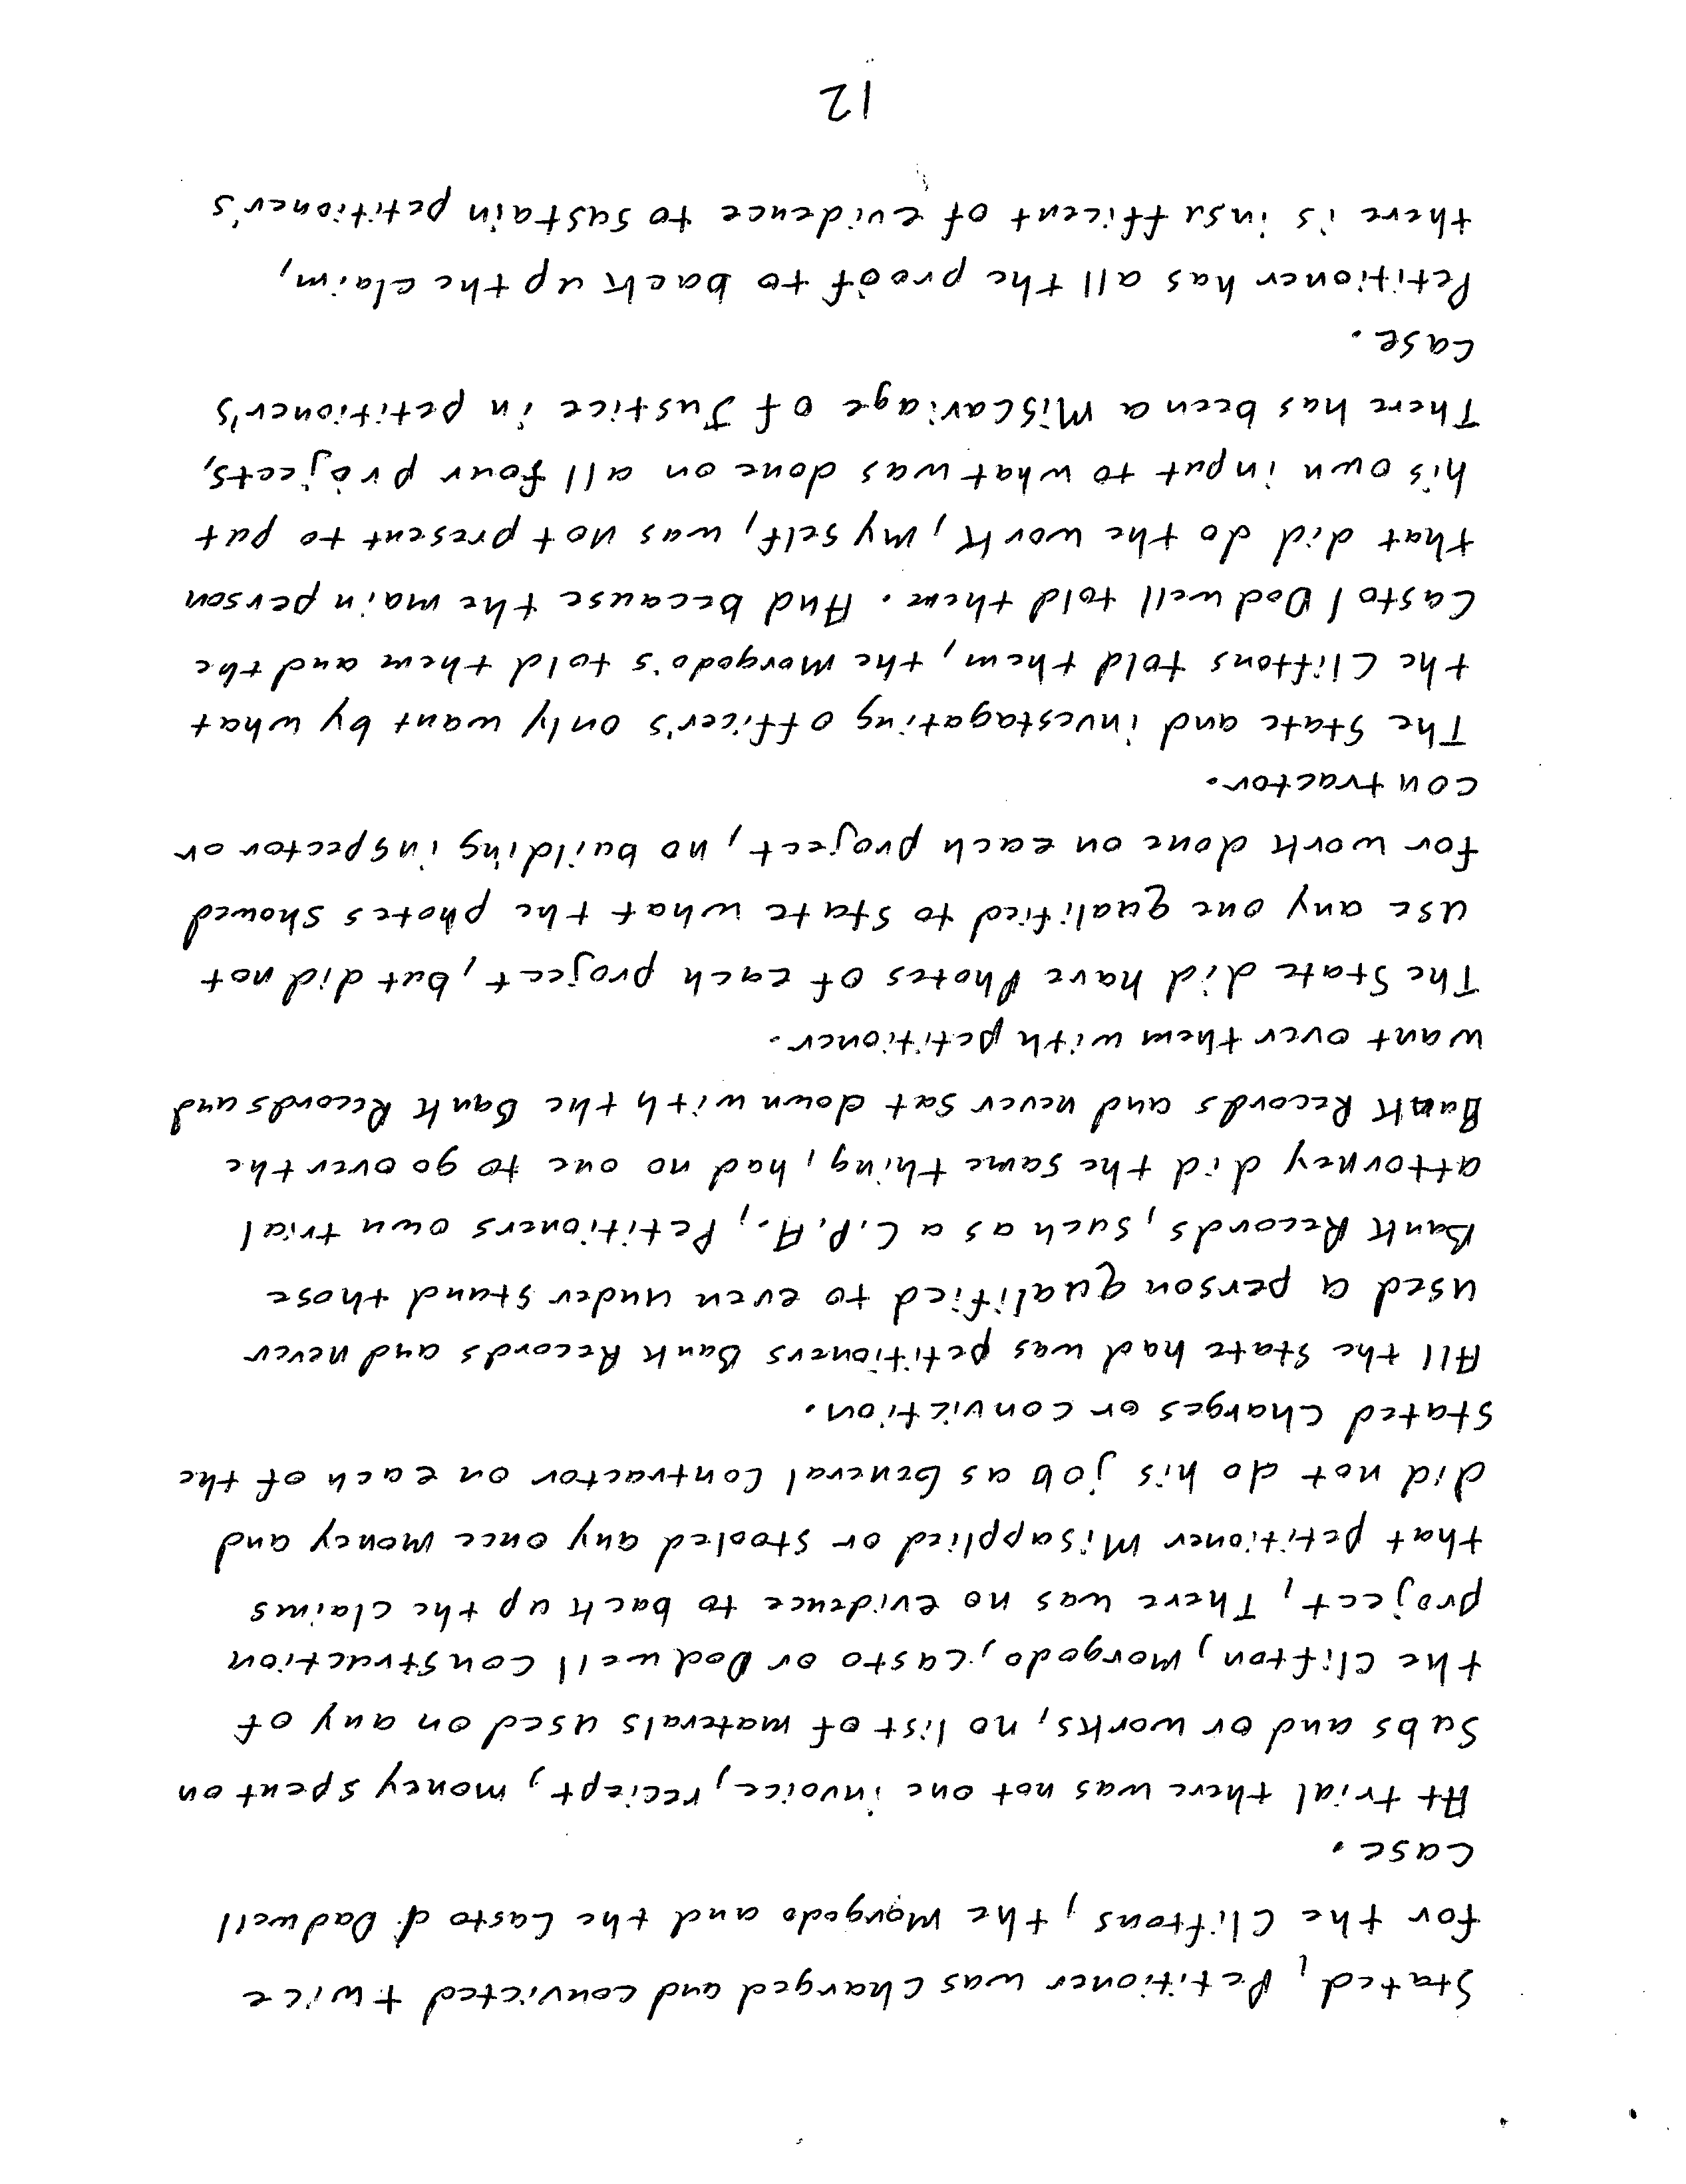 Stated, Petitioner was charged and convicted twice
for the Cliftons, the Morgado and the Casto Dadwell
case.
At trial there was not one invoice, reciept, money spent on
subs and or works, no list of materals used on any of
the Clifton, Morgodo, Casto or Dodwell construction
project, There was no evidence to back up the claims
that petitioner Misapplied or stooled any once money and
did not do his job as General Contractor on each of the
stated charges or conviction.
All the State had was petitioners Bank Records and never
used a person qualified to even under stand those
Bank Records, such as a C.P.A., Petitioners own trial
attorney did the same thing, had no one to go over the
Bank Records and never sat down with the Bank Records and
want over them with petitioner.
The State did have Photes of each project, but did not
use any one qualified to state what the photes showed
for work done on each project, no building inspector or
contractor.
The State and investagating officer's only want by what
the Cliftons told them, the Morgodo's told them and the
Casto / Dodwell told them. And because the main person
that did do the work, my self, was not present to put
his own input to what was done on all four projects,
There has been a Miscaviage of Justice in petitioner's
case.
Petitioner has all the proof to back up the claim,
there is insufficent of evidence to sustain petitioner's
12